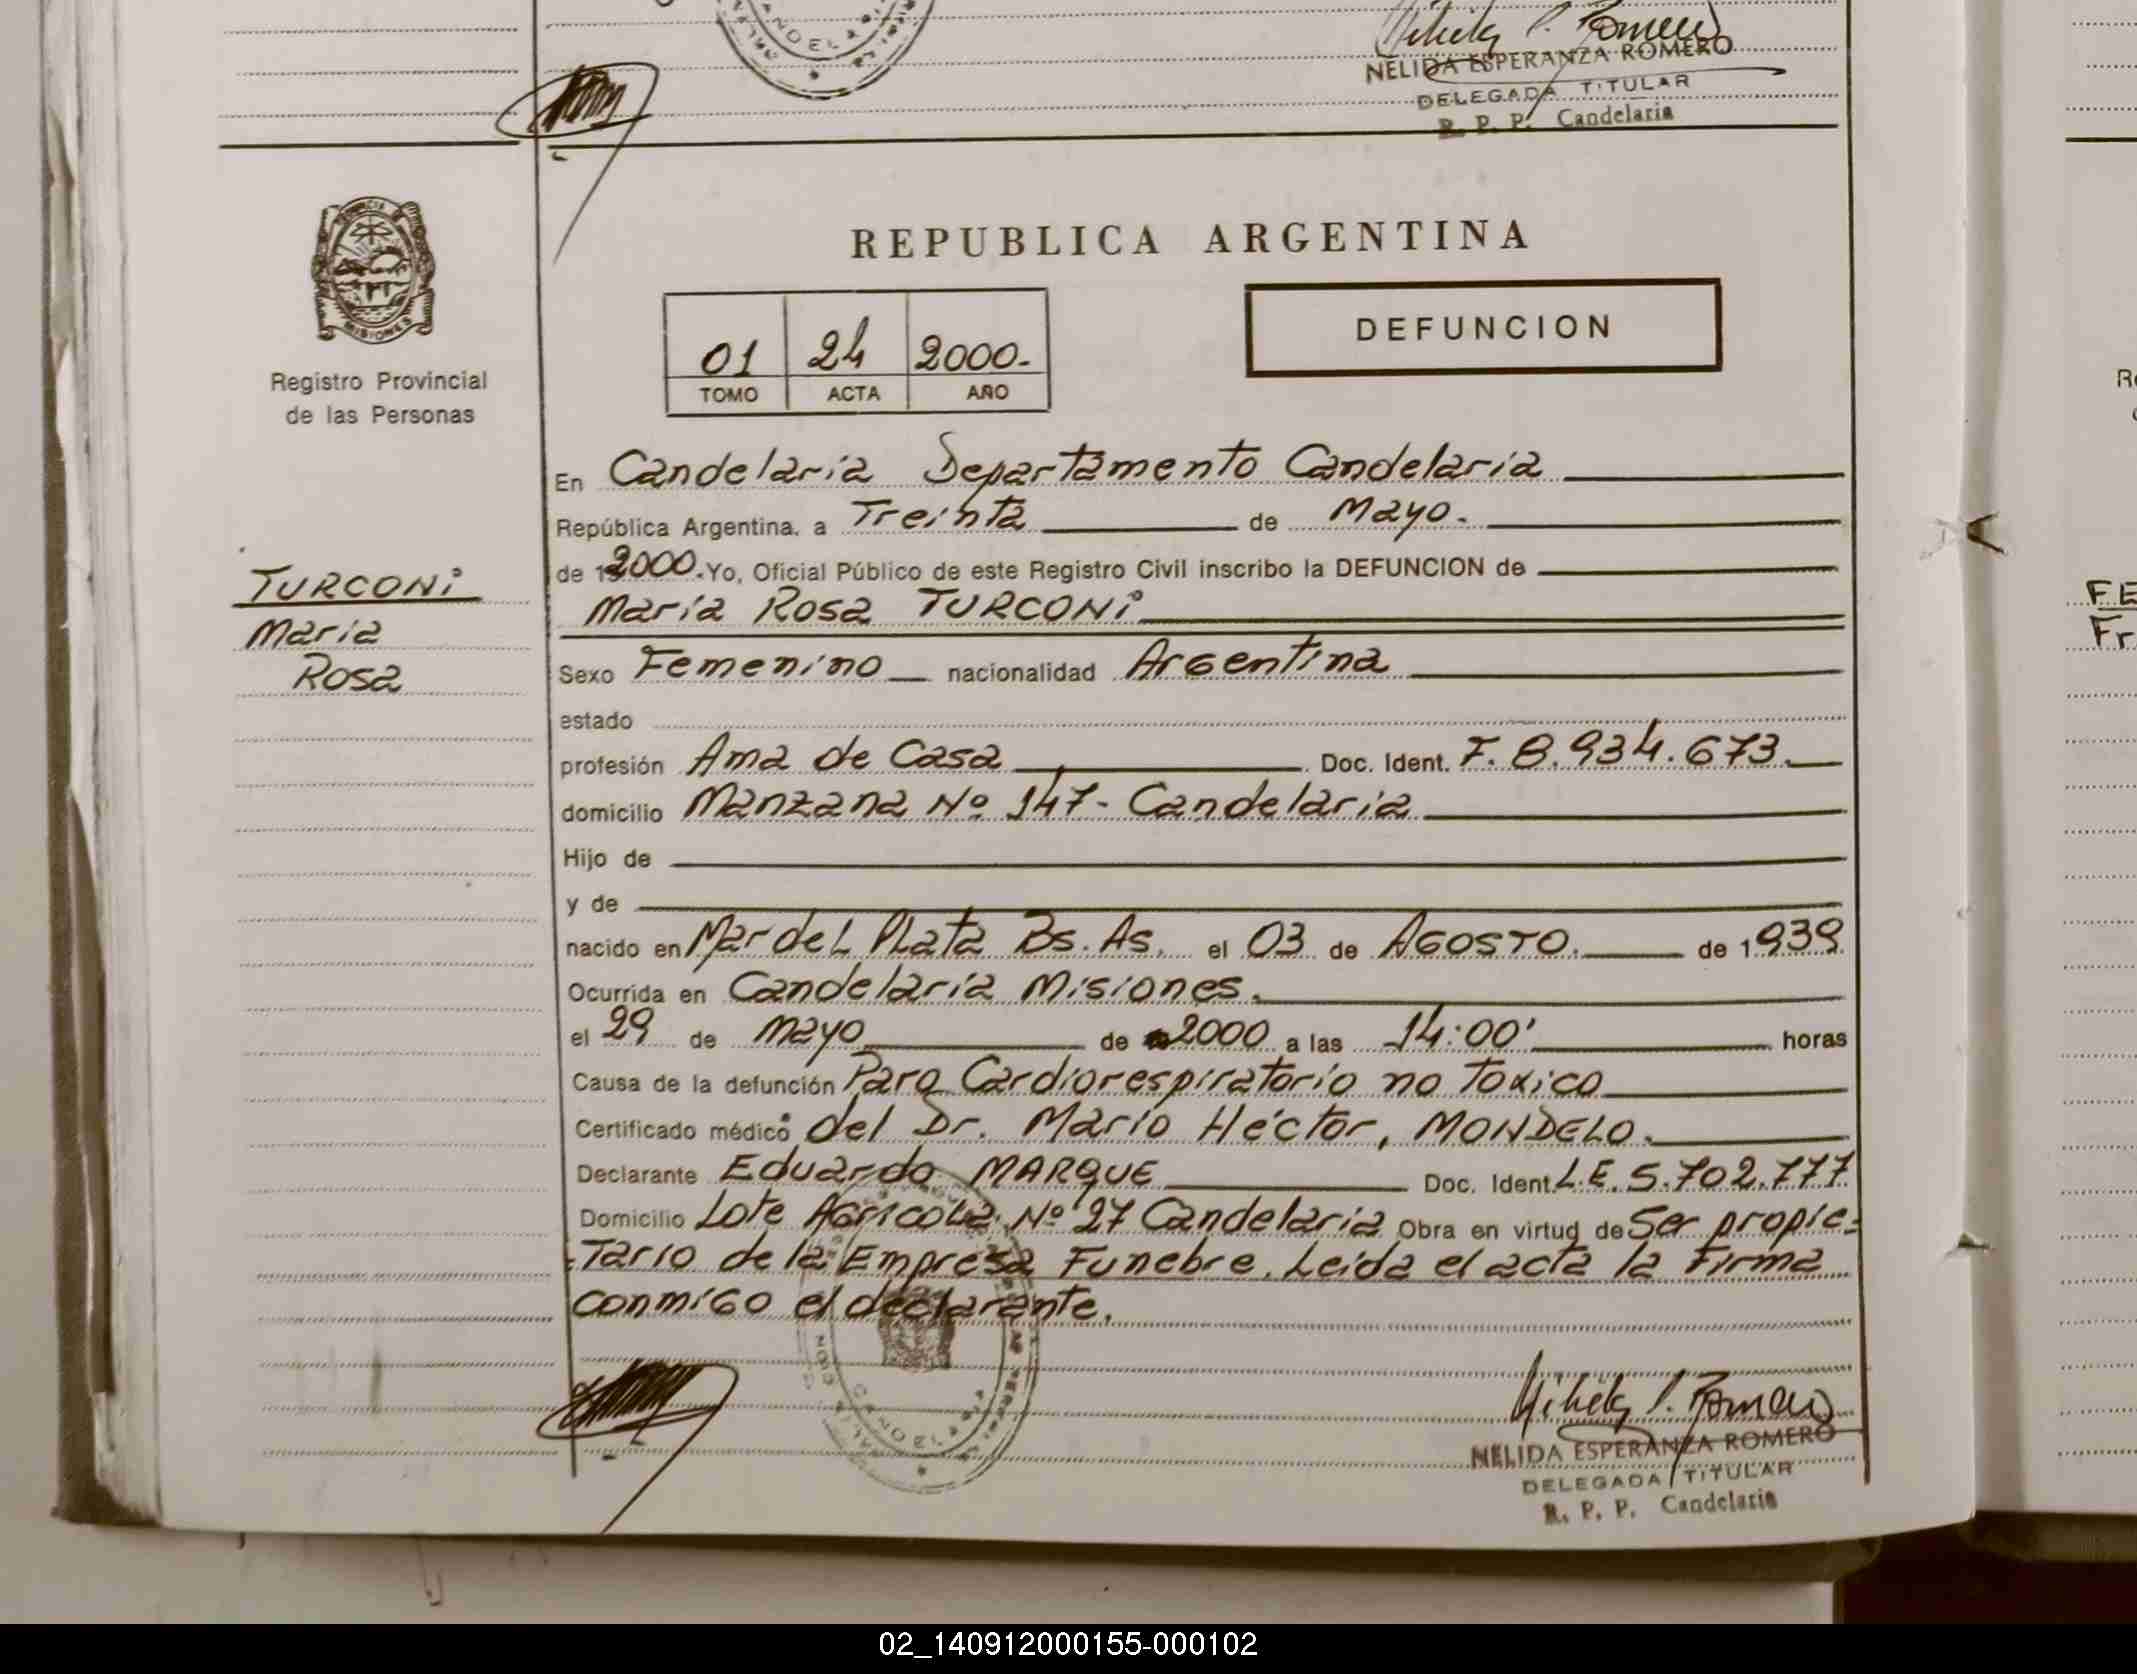 NELIDA ESPERANZA ROMERO
DELEGADA TITULAR
R. P. P. Candelaria
MISIONES
Registro Provincial
de las Personas
REPUBLICA ARGENTINA
01 24 2000-
TOMO ACTA AÑO
DEFUNCION
TURCONI
Maria
Rosa
En Candelaria Departamento Candelaria
República Argentina, a Treinta de Mayo.
de 2000. Yo, Oficial Público de este Registro Civil inscribo la DEFUNCION de
María Rosa TURCONI
Sexo Femenino nacionalidad Argentina
estado
profesión Ama de Casa Doc. Ident. F. 8.934.673.
domicilio Manzana Nº 147- Candelaria
Hijo de
y de
nacido en Mar del Plata Bs. As. el 03 de AGOSTO. de 1939
Ocurrida en Candelaria Misiones.
el 29 de Mayo de 2000 a las 14:00' horas
Causa de la defunción Paro Cardiorespiratorio no Toxico
Certificado médico del Dr. Mario Héctor, MONDELO.
Declarante Eduardo MARQUE Doc. Ident. L.E. 5.702.777
Domicilio Lote Agricola Nº 27 Candelaria Obra en virtud de Ser propie=
=Tario de la Empresa Funebre. Leída el acta la Firma
conmigo el declarante.
NELIDA ESPERANZA ROMERO
DELEGADA TITULAR
R. P. P. Candelaria
FE
Fr
02_140912000155-000102